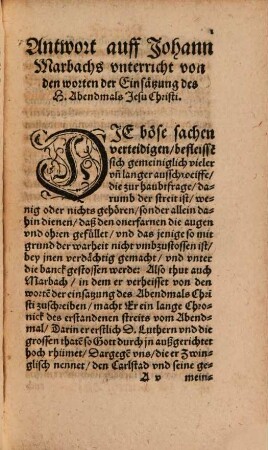 Antwort auff Johann
Marbachs vnterricht von
den worten der Einsätzung des
H. Abendmals Jesu Christi.
DIE böse sachen
verteidigen/befleissē
sich gemeiniglich vieler
vñ langer ausschweiffe/
die zur haubtfrage/dar-
umb der streit ist/we-
nig oder nichts gehören/sonder allein da-
hin dienen/daß den onerfarnen die augen
vnd ohren gefüllet/vnd das jenige so mit
grund der warheit nicht vmbzustossen ist/
bey jnen verdächtig gemacht/vnd vnter
die banck gestossen werde: Also thut auch
Marbach/in dem er verheisset von den
wortē der einsatzung des Abendmals Chri
sti zuschreiben/macht Er ein lange Chro-
nick des erstandenen streits vom Abend-
mal/Darin er erstlich D. Luthern vnd die
grossen thatē so Gott durch jn außgerichtet
hoch rhümet/Dargegē vns/die er Zwin-
glisch nennet/den Carlstad vnd seine ge-
A v mein-